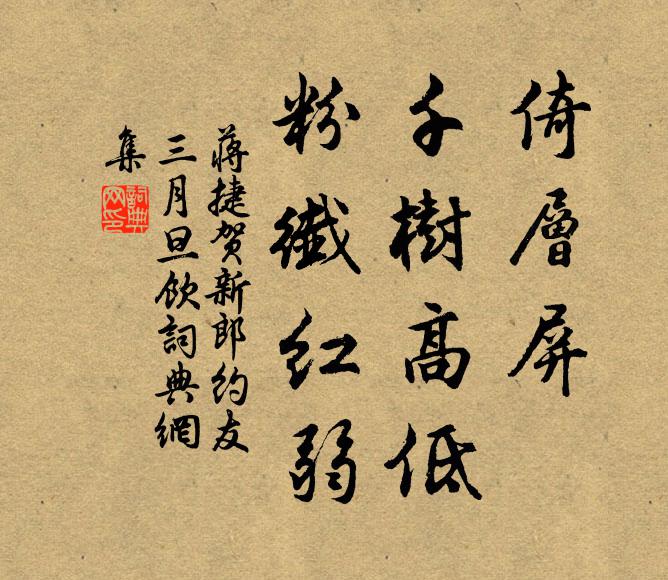 倚層屏
千樹高低
粉纖紅弱
蔣捷贺新郎约友
三月旦飲詞典網
集
詞典
网印